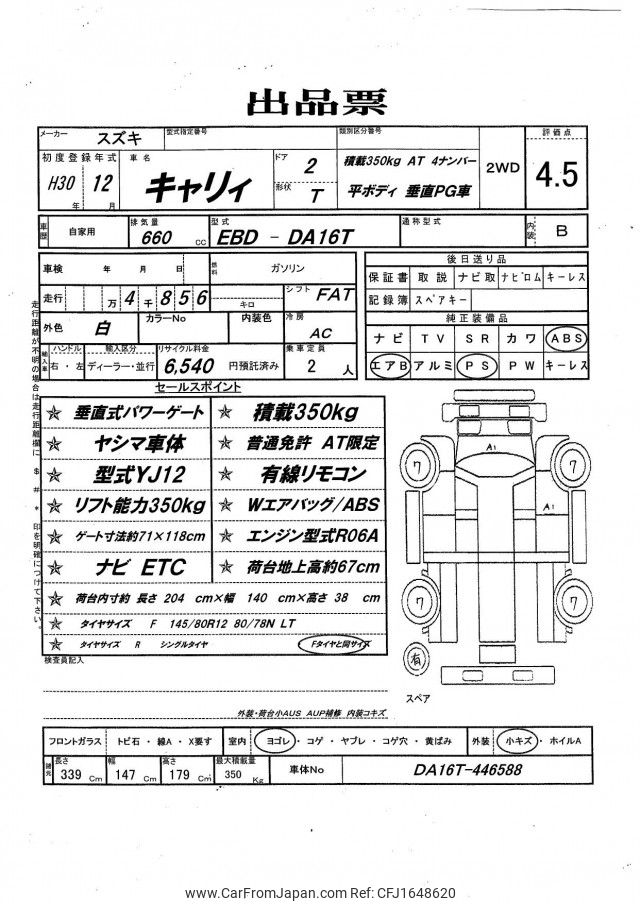 出品票
メーカー スズキ 型式指定番号 類別区分番号 評価点
初度登録年式 車名 ドア 2 積載350kg AT 4ナンバー 2WD 4.5
H30 年 12 月 キャリィ 形状 T 平ボディ 垂直PG車
車歴 自家用 排気量 660 CC 型式 EBD - DA16T 通称型式 内装 B
車検 年 月 日 燃料 ガソリン
走行 万 4 千 8 5 6 キロ シフト FAT
外色 白 カラーNo 内装色 冷房 AC
輸入車 ハンドル 右・左 輸入区分 ディーラー・並行 リサイクル料金 6,540 円預託済み 乗車定員 2 人
後日送り品
保証書 取説 ナビ取 ナビロム キーレス
記録簿 スペアキー
純正装備品
ナビ TV SR カワ ABS
エアB アルミ PS PW キーレス
走行距離が不明の場合は走行距離欄に $ # * 印を明確につけて下さい。
セールスポイント
☆ 垂直式パワーゲート ☆ 積載350kg
☆ ヤシマ車体 ☆ 普通免許 AT限定
☆ 型式YJ12 ☆ 有線リモコン
☆ リフト能力350kg ☆ Wエアバッグ/ABS
☆ ゲート寸法約71×118cm ☆ エンジン型式R06A
☆ ナビ ETC ☆ 荷台地上高約67cm
☆ 荷台内寸約 長さ 204 cm×幅 140 cm×高さ 38 cm
☆ タイヤサイズ F 145/80R12 80/78N LT
☆ タイヤサイズ R シングルタイヤ Fタイヤと同サイズ
検査員記入
外装・荷台小AUS AUP補修 内装コキズ
A1
7 7
A1
7 7
有
スペア
フロントガラス トビ石・線A・X要す 室内 ヨゴレ・コゲ・ヤブレ・コゲ穴・黄ばみ 外装 小キズ・ホイルA
諸元 長さ 339 Cm 幅 147 Cm 高さ 179 Cm 最大積載量 350 Kg 車体No DA16T-446588
www.CarFromJapan.com Ref: CFJ1648620